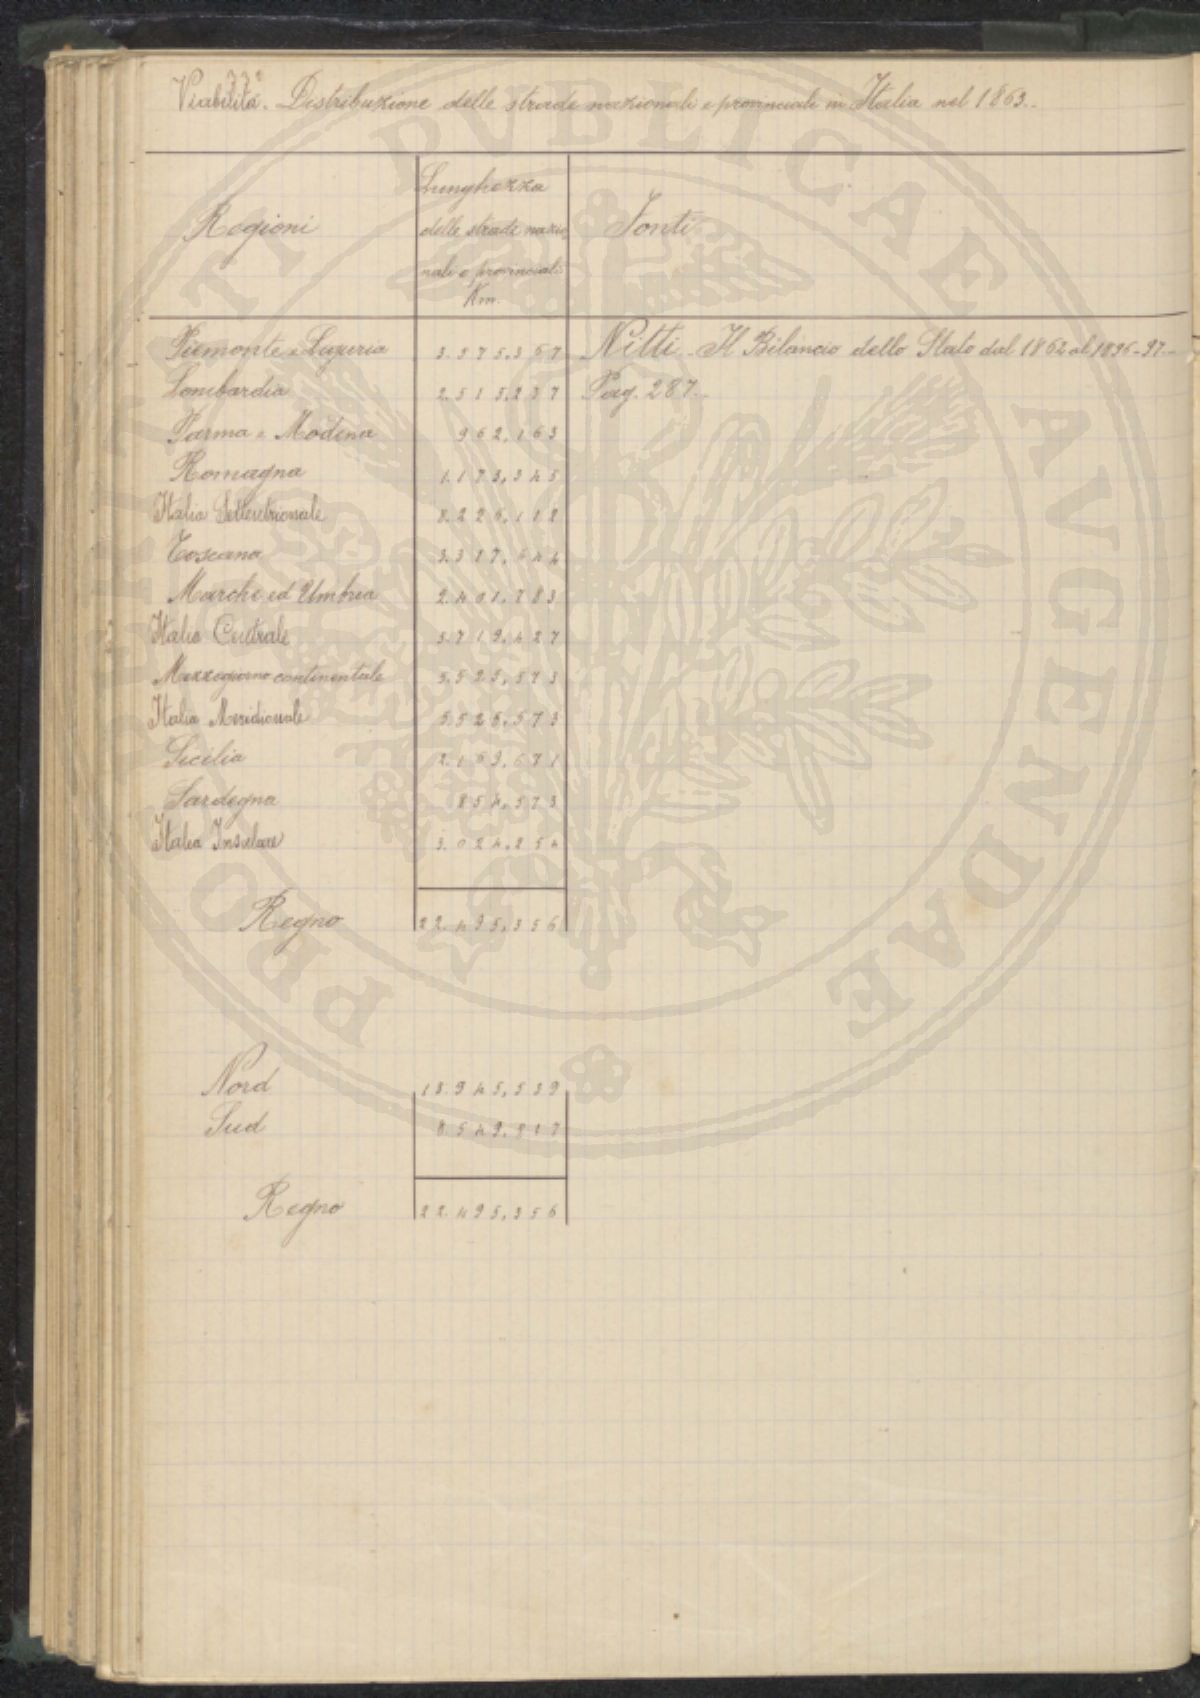 33ª
Viabilità. Distribuzione delle strade nazionali e provinciali in Italia nel 1863.
Regioni
Lunghezza
delle strade nazio
nali e provinciali
Km.
Fonti
Piemonte e Liguria 3.575,367 Nitti - Il Bilancio dello Stato dal 1862 al 1896-97.-
Lombardia 2.515,237 Pag. 287.
Parma e Modena 962,163
Romagna 1.173,345
Italia Settentrionale 8.226,112
Toscana 3.317,644
Marche ed Umbria 2.401,783
Italia Centrale 5.719,427
Mezzogiorno continentale 5.525,573
Italia Meridionale 5.525,573
Sicilia 2.169,671
Sardegna 854,573
Italia Insulare 3.024,254
Regno 22.495,356
Nord 13.945,539
Sud 8.549,817
Regno 22.495,356
PROVIDENTI PUBLICAE AVGENDAE